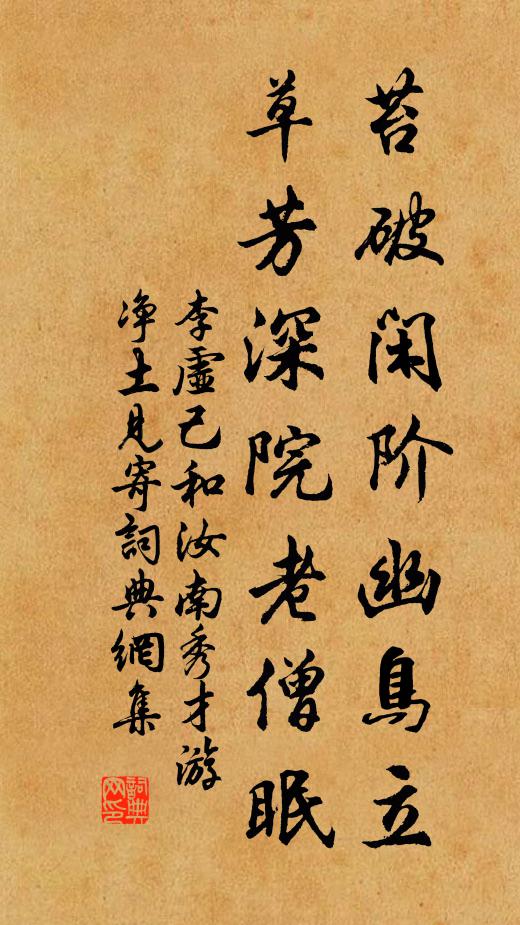 苔破闲阶幽鳥立
草芳深院老僧眠
李虛己和汝南秀才游
净土見寄詞典網集
詞典
网印